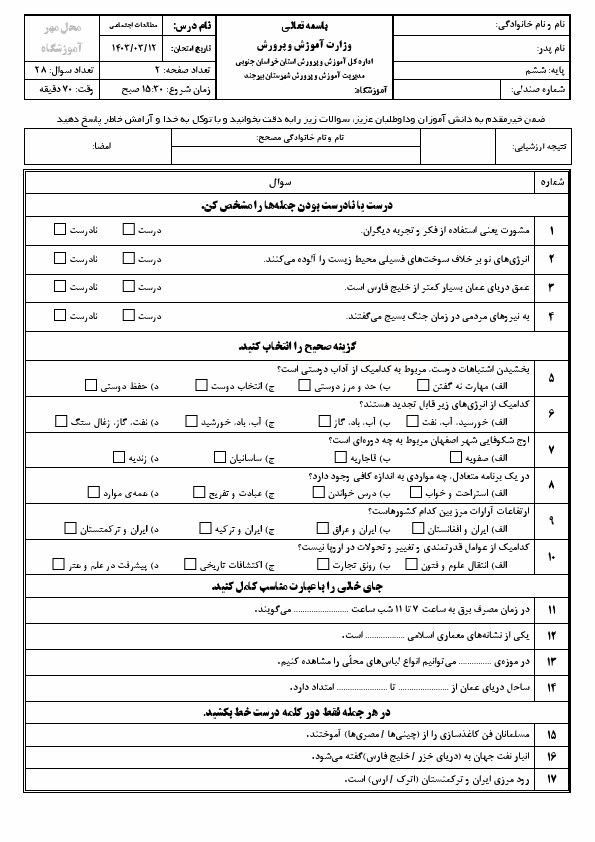 نام و نام خانوادگی:
نام پدر:
پایه: ششم
شماره صندلی:
باسمه تعالی
وزارت آموزش و پرورش
اداره کل آموزش و پرورش استان خراسان جنوبی
مدیریت آموزش و پرورش شهرستان بیرجند
آموزشگاه:
نام درس: مطالعات اجتماعی
تاریخ امتحان: ۱۴۰۲/۰۳/۱۲
تعداد صفحه: ۲
زمان شروع: ۱۵:۳۰ صبح
محل مهر
آموزشگاه
تعداد سوال: ۲۸
وقت: ۷۰ دقیقه
ضمن خیرمقدم به دانش آموزان وداوطلبان عزیز، سوالات زیر رابه دقت بخوانید و با توکل به خدا و آرامش خاطر پاسخ دهید
نتیجه ارزشیابی:
نام و نام خانوادگی مصحح:
امضا:
شماره سوال
درست یا نادرست بودن جمله‌ها را مشخص کن.
۱ مشورت یعنی استفاده از فکر و تجربه دیگران. درست نادرست
۲ انرژی‌های نو بر خلاف سوخت‌های فسیلی محیط زیست را آلوده می‌کنند. درست نادرست
۳ عمق دریای عمان بسیار کمتر از خلیج فارس است. درست نادرست
۴ به نیروهای مردمی در زمان جنگ بسیج می‌گفتند. درست نادرست
گزینه صحیح را انتخاب کنید.
۵ بخشیدن اشتباهات دوست، مربوط به کدامیک از آداب دوستی است؟
الف) مهارت نه گفتن ب) حد و مرز دوستی ج) انتخاب دوست د) حفظ دوستی
۶ کدامیک از انرژی‌های زیر قابل تجدید هستند؟
الف) خورشید، آب، نفت ب) آب، باد، گاز ج) آب، باد، خورشید د) نفت، گاز، زغال سنگ
۷ اوج شکوفایی شهر اصفهان مربوط به چه دوره‌ای است؟
الف) صفویه ب) قاجاریه ج) ساسانیان د) زندیه
۸ در یک برنامه متعادل، چه مواردی به اندازه کافی وجود دارد؟
الف) استراحت و خواب ب) درس خواندن ج) عبادت و تفریح د) همه‌ی موارد
۹ ارتفاعات آرارات مرز بین کدام کشورهاست؟
الف) ایران و افغانستان ب) ایران و عراق ج) ایران و ترکیه د) ایران و ترکمنستان
۱۰ کدامیک از عوامل قدرتمندی و تغییر و تحولات در اروپا نیست؟
الف) انتقال علوم و فنون ب) رونق تجارت ج) اکتشافات تاریخی د) پیشرفت در علم و هنر
جای خالی را با عبارت مناسب کامل کنید.
۱۱ در زمان مصرف برق به ساعت ۷ تا ۱۱ شب ساعت ........................ می‌گویند.
۱۲ یکی از نشانه‌های معماری اسلامی ................. است.
۱۳ در موزه‌ی .............. می‌توانیم انواع لباس‌های محلّی را مشاهده کنیم.
۱۴ ساحل دریای عمان از ...................... تا ...................... امتداد دارد.
در هر جمله فقط دور کلمه درست خط بکشید.
۱۵ مسلمانان فن کاغذسازی را از (چینی‌ها / مصری‌ها) آموختند.
۱۶ انبار نفت جهان به (دریای خزر / خلیج فارس)گفته می‌شود.
۱۷ رود مرزی ایران و ترکمنستان (اترک / ارس) است.